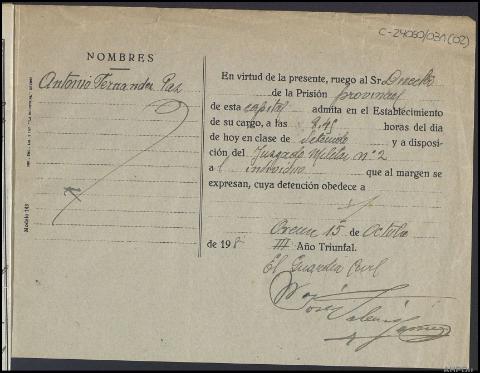 C-24080/031(02)
NOMBRES
Antonio Fernandez Paz
En virtud de la presente, ruego al Sr Director
de la Prisión provincial
de esta capital admita en el Establecimiento
de su cargo, a las 8,45 horas del día
de hoy en clase de detenido y a disposi-
ción del Juzgado Militar nº 2
a l individuo que al margen se
expresan, cuya detención obedece a
Orense 15 de Octubre
de 193 III Año Triunfal.
El Guardia Civil
José
Modelo 149